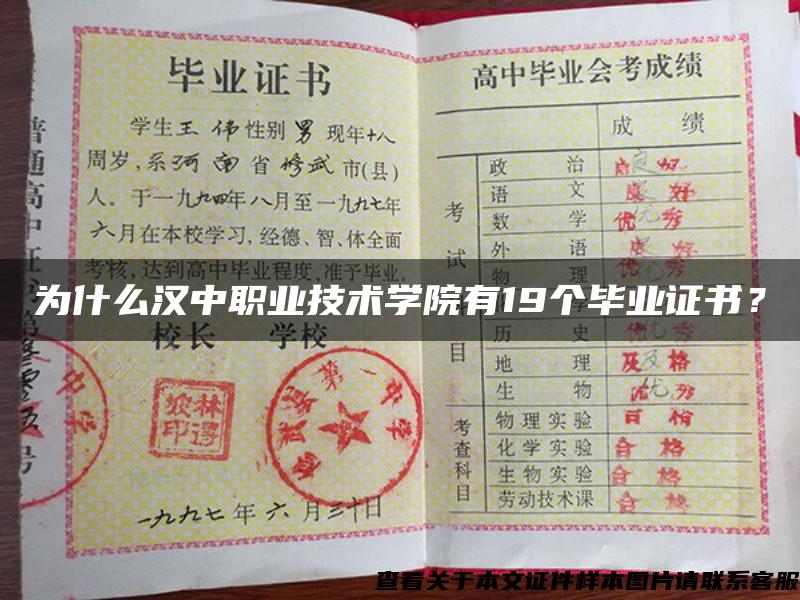 毕业证书
学生王 伟性别 男 现年十八
周岁，系河南省修武市(县)
人。于一九九四年八月至一九九七年
六月在本校学习，经德、智、体全面
考核，达到高中毕业程度，准予毕业。
校长 学校
林
印
第一中学
一九九七年六月三十日
普通高中证书第
号
高中毕业会考成绩
成 绩
考试
目
政 治 良好
语 文 良好
数 学 优秀
外 语 良好
物 理 优秀
历 史 优
地 理 及格
生 物 优秀
考查科目
物理实验 合格
化学实验 合格
生物实验 合格
劳动技术课 合格
为什么汉中职业技术学院有19个毕业证书？
查看关于本文证件样本图片请联系客服